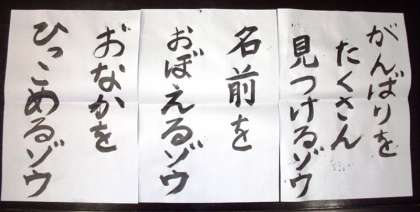 がんばりを
たくさん
見つけるゾウ
名前を
おぼえるゾウ
おなかを
ひっこめるゾウ